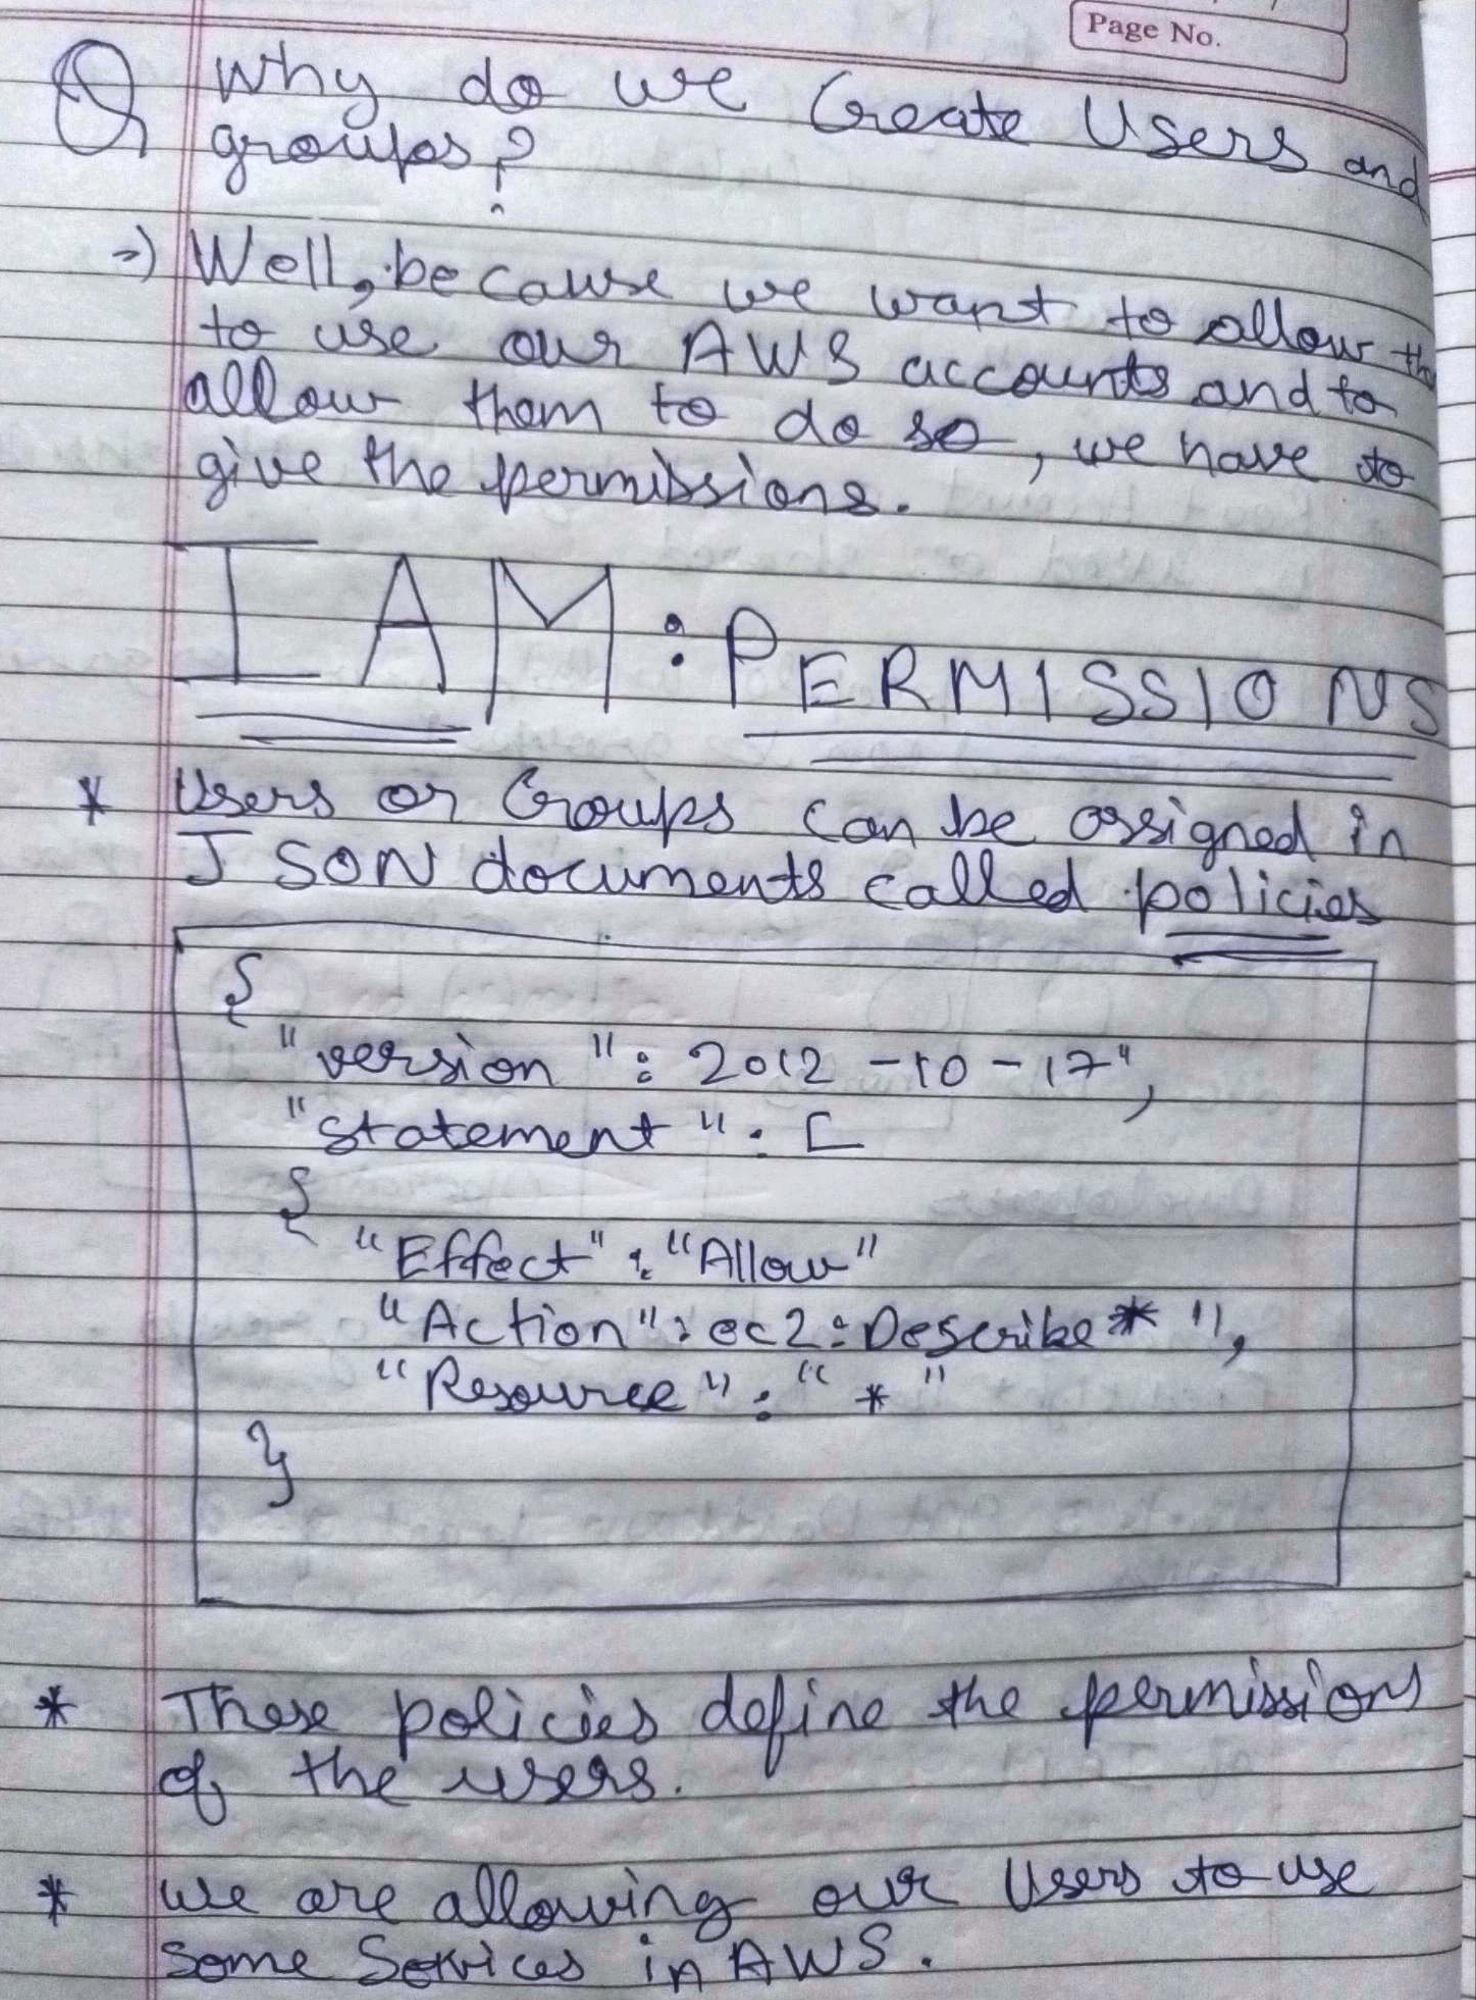 Page No.
Q Why do we Create Users and
groups?
=) Well, because we want to allow the
to use our AWS accounts and to
allow them to do so, we have to
give the permissions.
IAM: PERMISSIONS
* Users or Groups can be assigned in
JSON documents called policies
{
"version": 2012-10-17",
"statement": [
{
"Effect": "Allow"
"Action": ec2:Describe*",
"Resource": "*"
}
* These policies define the permissions
of the users.
* We are allowing our Users to use
some Services in AWS.